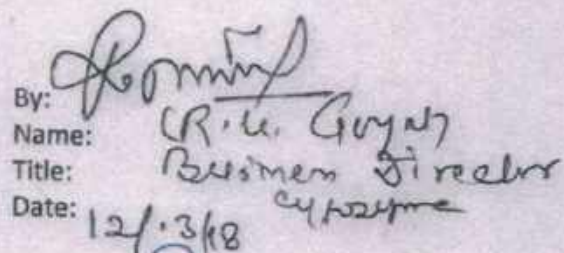 By:
Name: (R.K. Goyal)
Title: Business Director
Date: 12/.3/18